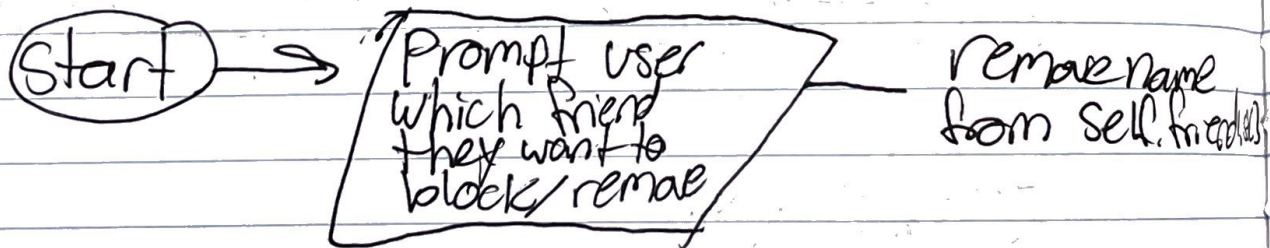 Start
Prompt user
which friend
they want to
block/remove
remove name
from self.friend